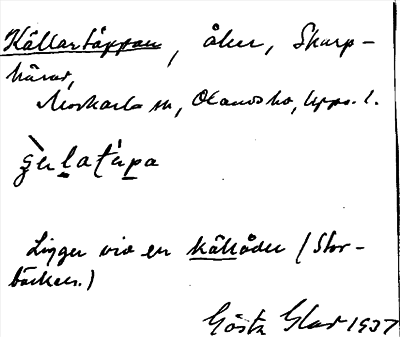 Källartäppan, åker, Skarp-
Morkarla sn, Olands hd, Upps. l.
Ligger vid en källåder (Stor-
bäcken.)
Gösta 1937